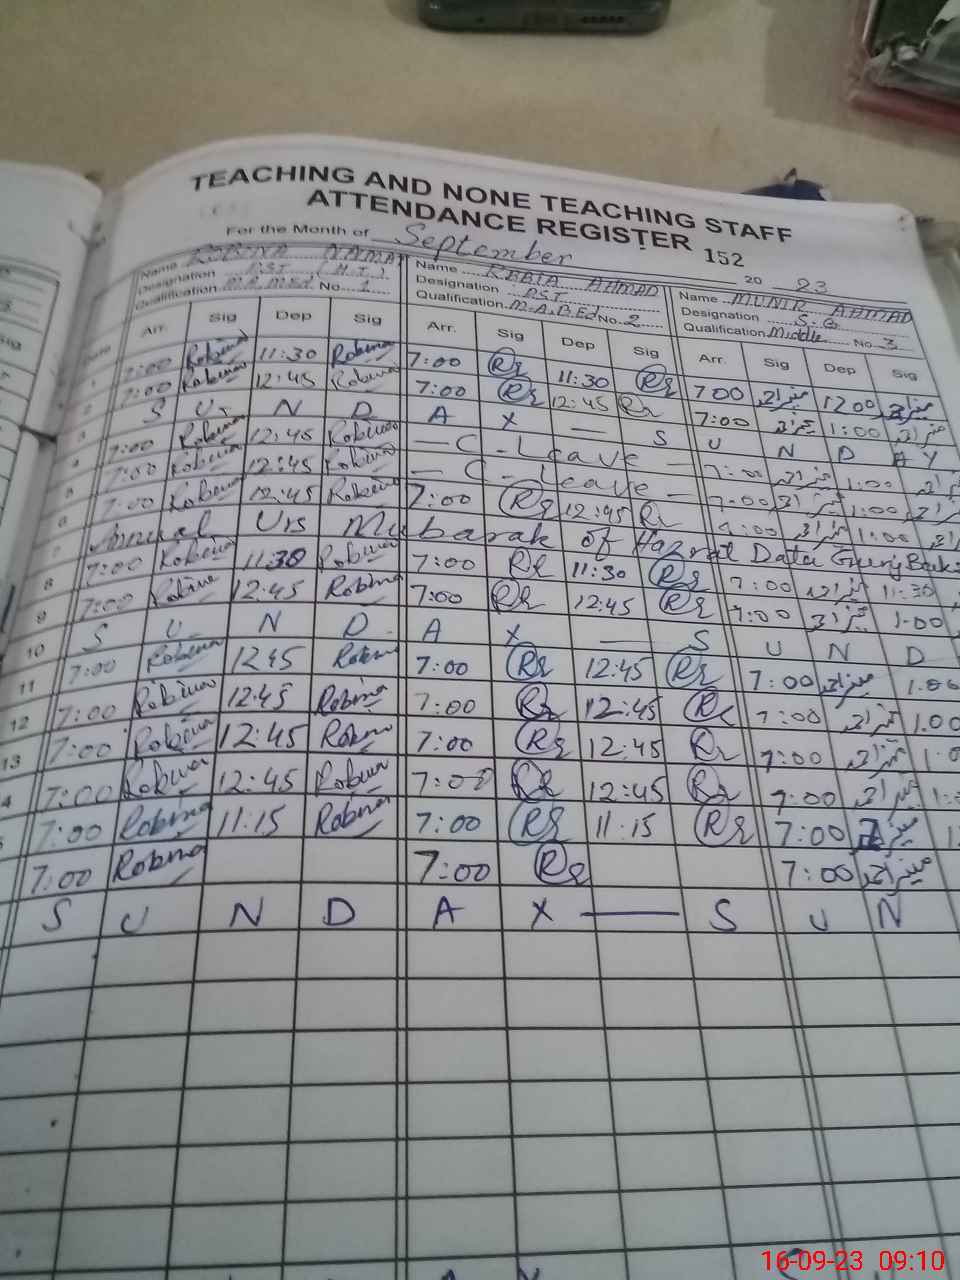 TEACHING AND NONE TEACHING STAFF
ATTENDANCE REGISTER 152
For the Month of September 20 23
Name ROBINA Name RABIA AHMAD Name MUNIR AHMAD
Designation PST (H.T) Designation PST Designation S.G
Qualification M.A, M.Ed No. 1 Qualification M.A.B.Ed No. 2 Qualification Middle No. 3
Arr. Sig Dep Sig Arr. Sig Dep Sig Arr. Sig Dep Sig
1 7:00 Robina 11:30 Robina 7:00 11:30 7:00 منیر احمد 12:00 منیر احمد
2 7:00 Robina 12:45 Robina 7:00 12:45 7:00 منیر احمد 1:00 منیر احمد
3 S U N D A Y — S U N D A Y
4 7:00 Robina 12:45 Robina — C - Leave — 7:00 منیر احمد 1:00
5 7:00 Robina 12:45 Robina — C - Leave — 7:00 منیر احمد 1:00
6 7:00 Robina 12:45 Robina 7:00 12:45 7:00 منیر احمد 1:00
7 Annual Urs Mubarak of Hazrat Data Gunj Baksh
8 7:00 Robina 11:30 Robina 7:00 11:30 7:00 منیر احمد 11:30
9 7:00 Robina 12:45 Robina 7:00 12:45 7:00 منیر احمد 1:00
10 S U N D A Y — S U N D
11 7:00 Robina 12:45 Robina 7:00 12:45 7:00 منیر احمد 1:00
12 7:00 Robina 12:45 Robina 7:00 12:45 7:00 منیر احمد 1:00
13 7:00 Robina 12:45 Robina 7:00 12:45 7:00 منیر احمد
7:00 Robina 12:45 Robina 7:00 12:45 7:00 منیر احمد
7:00 Robina 11:15 Robina 7:00 11:15 7:00
7:00 Robina 7:00 7:00 منیر احمد
S U N D A Y — S U N
16-09-23 09:10